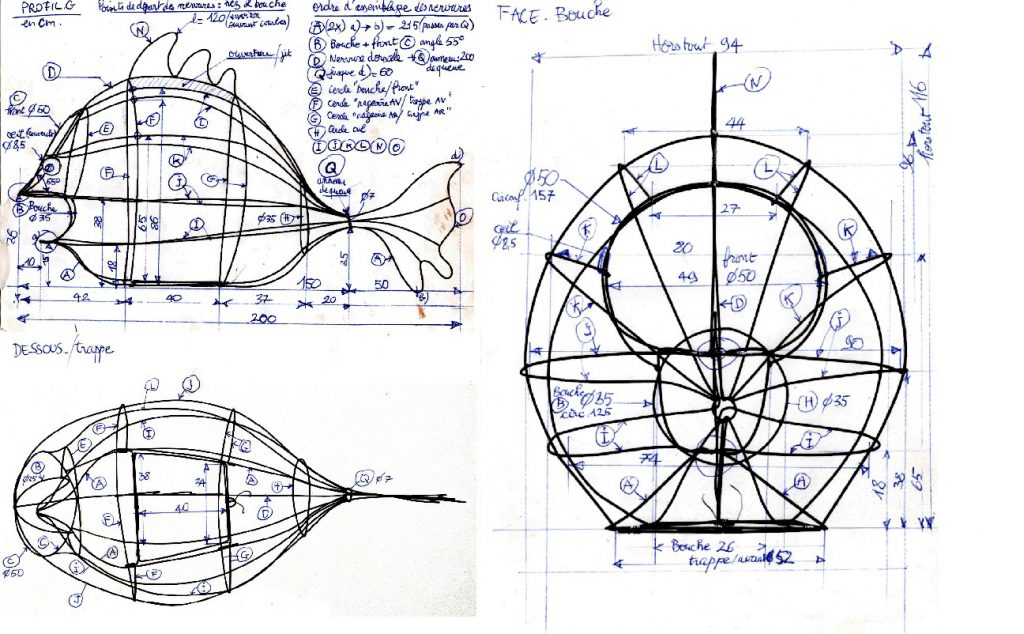 PROFIL.G
en cm.
Points de départ des nervures : nez et bouche
l = 120
N
ouverture/jit
D
ordre d'assemblage des nervures
A (2x) a) → b) = 215 (passer par Q)
B Bouche + front C angle 55°
D Nervure dorsale → Q anneau: 200
de queue
Q jusque d) = 60
E Cercle "bouche/front"
F Cercle "nageoire AV/trappe AV"
G Cercle "nageoire AR/trappe AR"
H Cercle
I J K L N O
Q
anneau
de queue
C
front Ø50
Ø8,5
E
F
L
K
J
G
F
55°
B
Bouche
Ø35
38
65
86
I
Ø35 H
Ø7
d)
O
36
10
A
18
35
A
b)
150
42
40
37
20
50
200
DESSOUS/trappe
L
J
F
I
G
E
B
A
38
34
40
A
H
D
Q
Ø7
F
C
A
G
C
Ø50
i
F
J
i
FACE. Bouche
Horstout 94
N
44
L
L
Ø50
Circonf. 157
27
Horstout 116
96
oeil
Ø8,5
K
K
20
front
49
Ø50
D
K
K
J
J
90
Bouche
B Ø35
circ 125
H Ø35
I
I
74
A
A
18
38
65
Bouche 26
trappe/avant 52